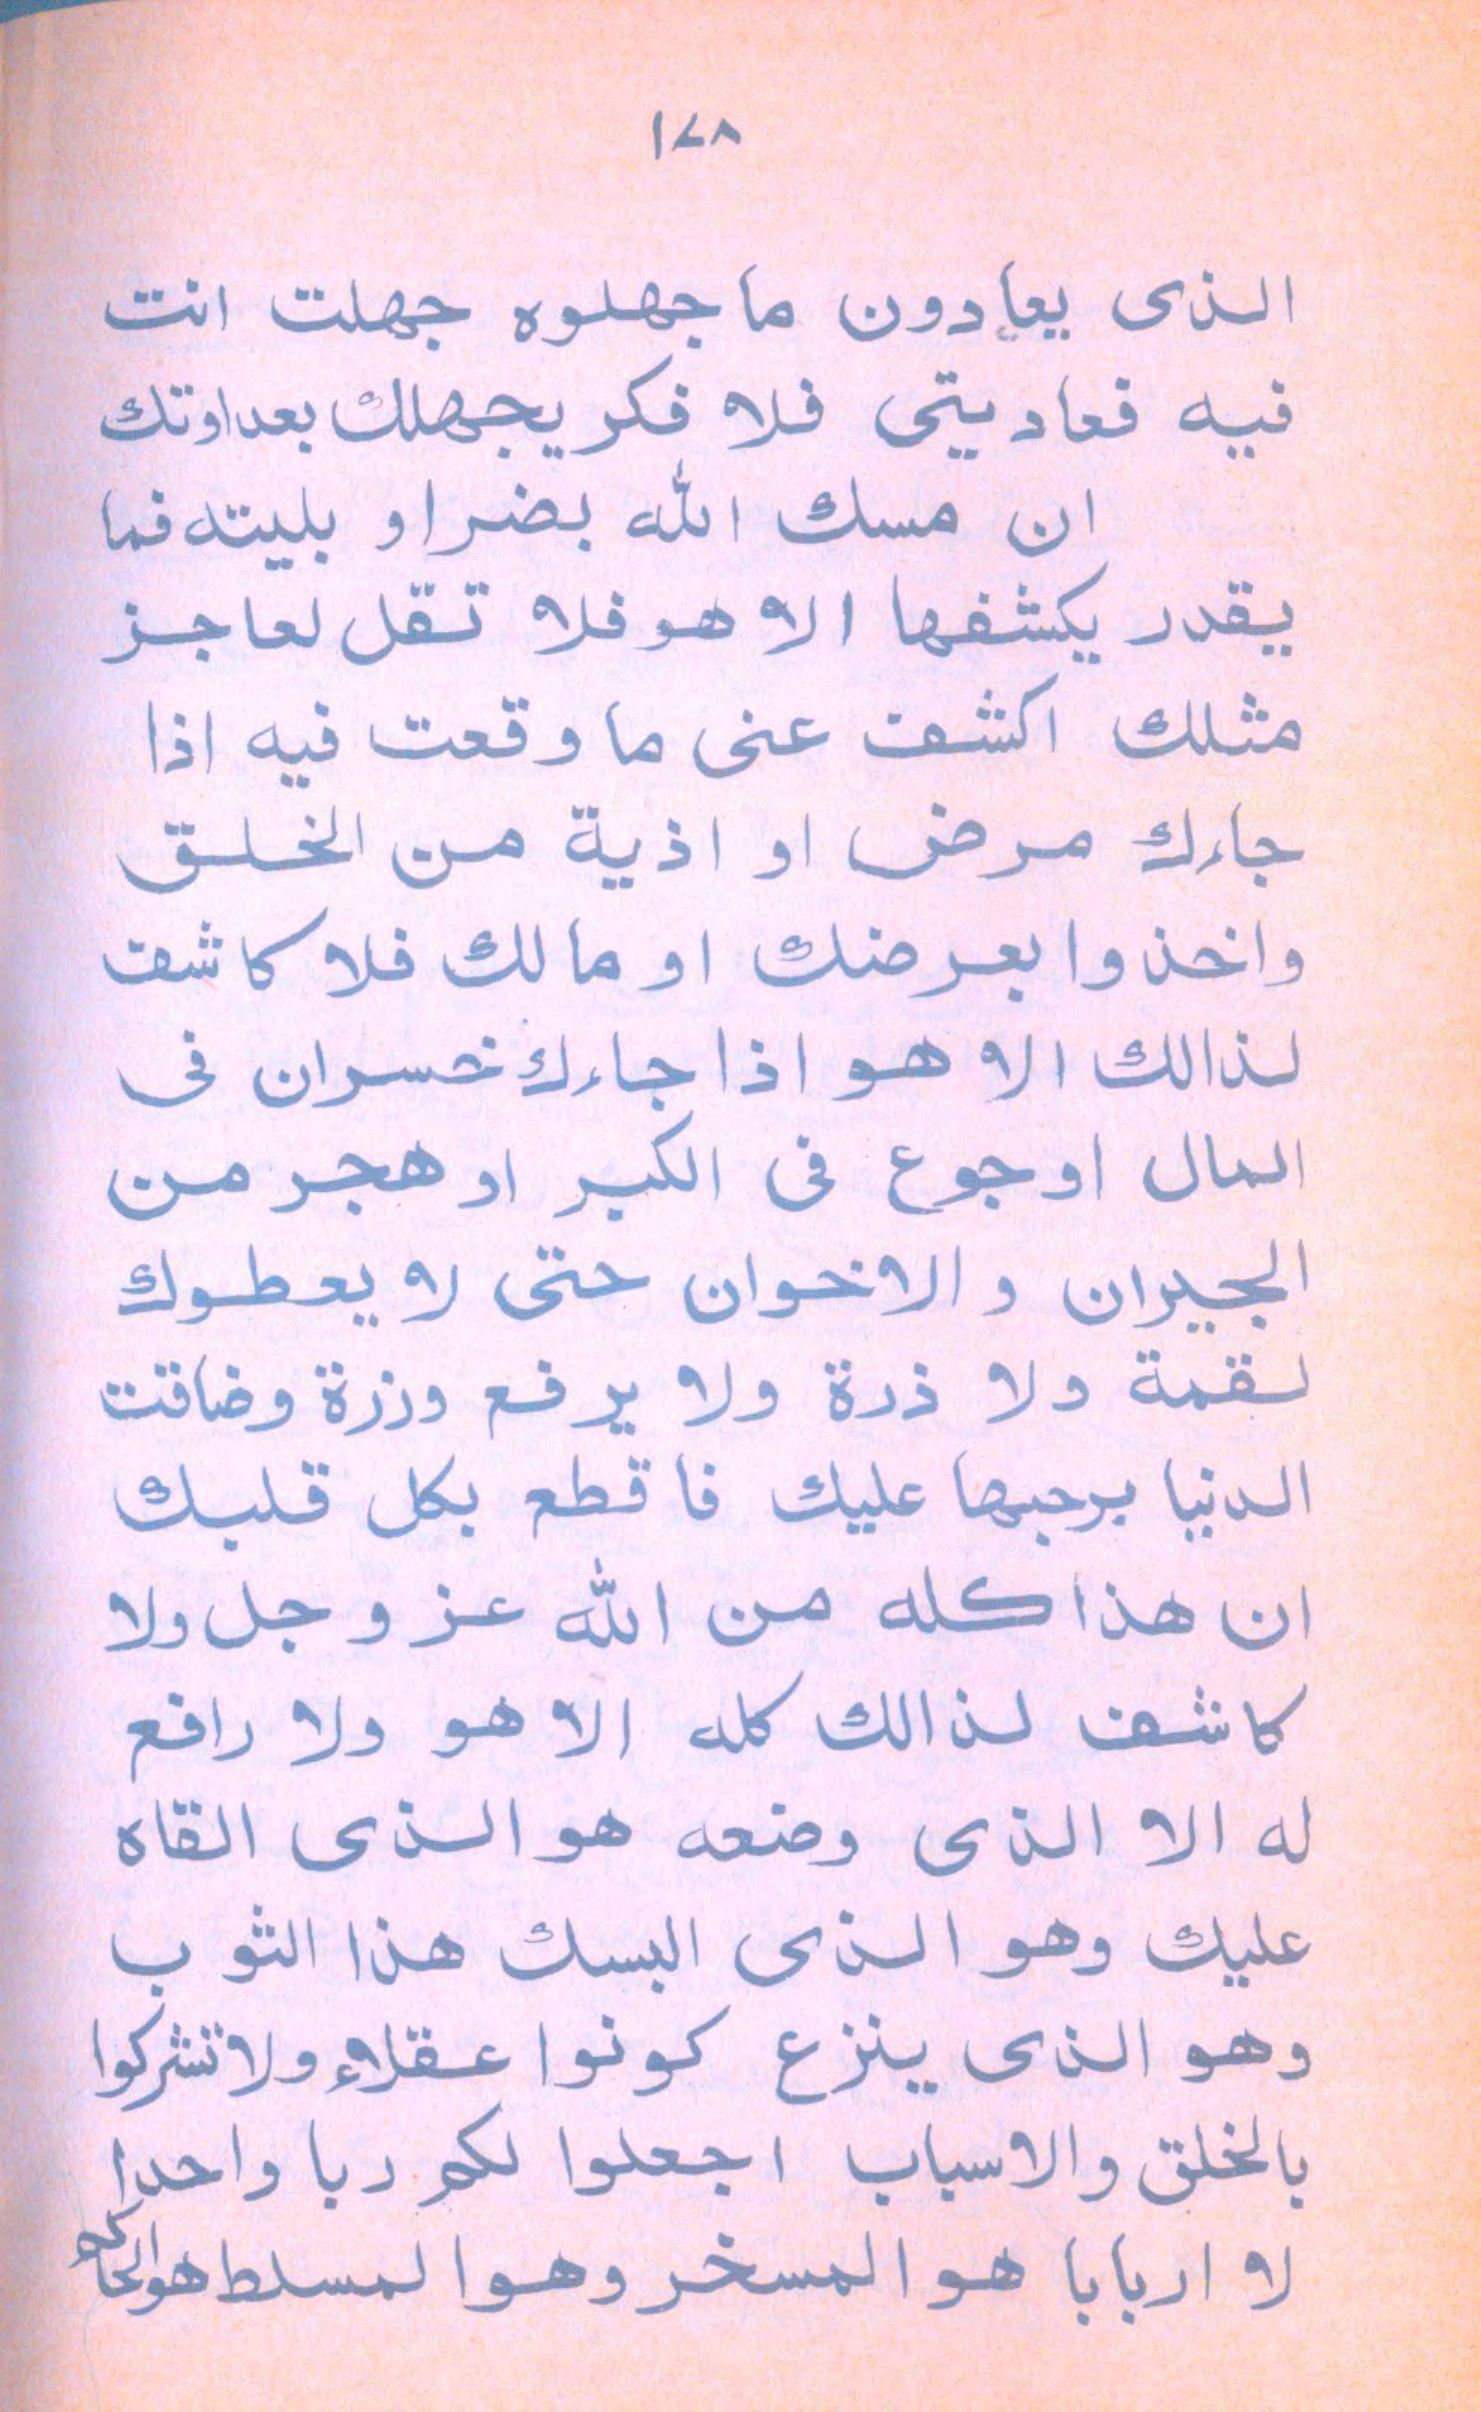 ١٧٨
الذى يعادون ما جهلوه جهلت انت
فيه فعاديتى فلا فكر يجهلك بعداوتك
ان مسك الله بضر او بليته فما
يقدر يكشفها الا هو فلا تقل لعاجز
مثلك اكشف عنى ما وقعت فيه اذا
جاءك مرض او اذية من الخلق
واخذوا بعرضك او مالك فلا كاشف
لذالك الا هو اذا جاءك خسران فى
المال او جوع فى الكبر او هجر من
الجيران والاخوان حتى لا يعطوك
لقمة ولا ذرة ولا يرفع وزرة وضاقت
الدنيا برحبها عليك فاقطع بكل قلبك
ان هذا كله من الله عز وجل ولا
كاشف لذالك كله الا هو ولا رافع
له الا الذى وضعه هو الذى القاه
عليك وهو الذى البسك هذا الثوب
وهو الذى ينزع كونوا عقلاء ولا تشركوا
بالخلق والاسباب اجعلوا لكم ربا واحدا
لا اربابا هو المسخر وهو المسلط هو الحاكم